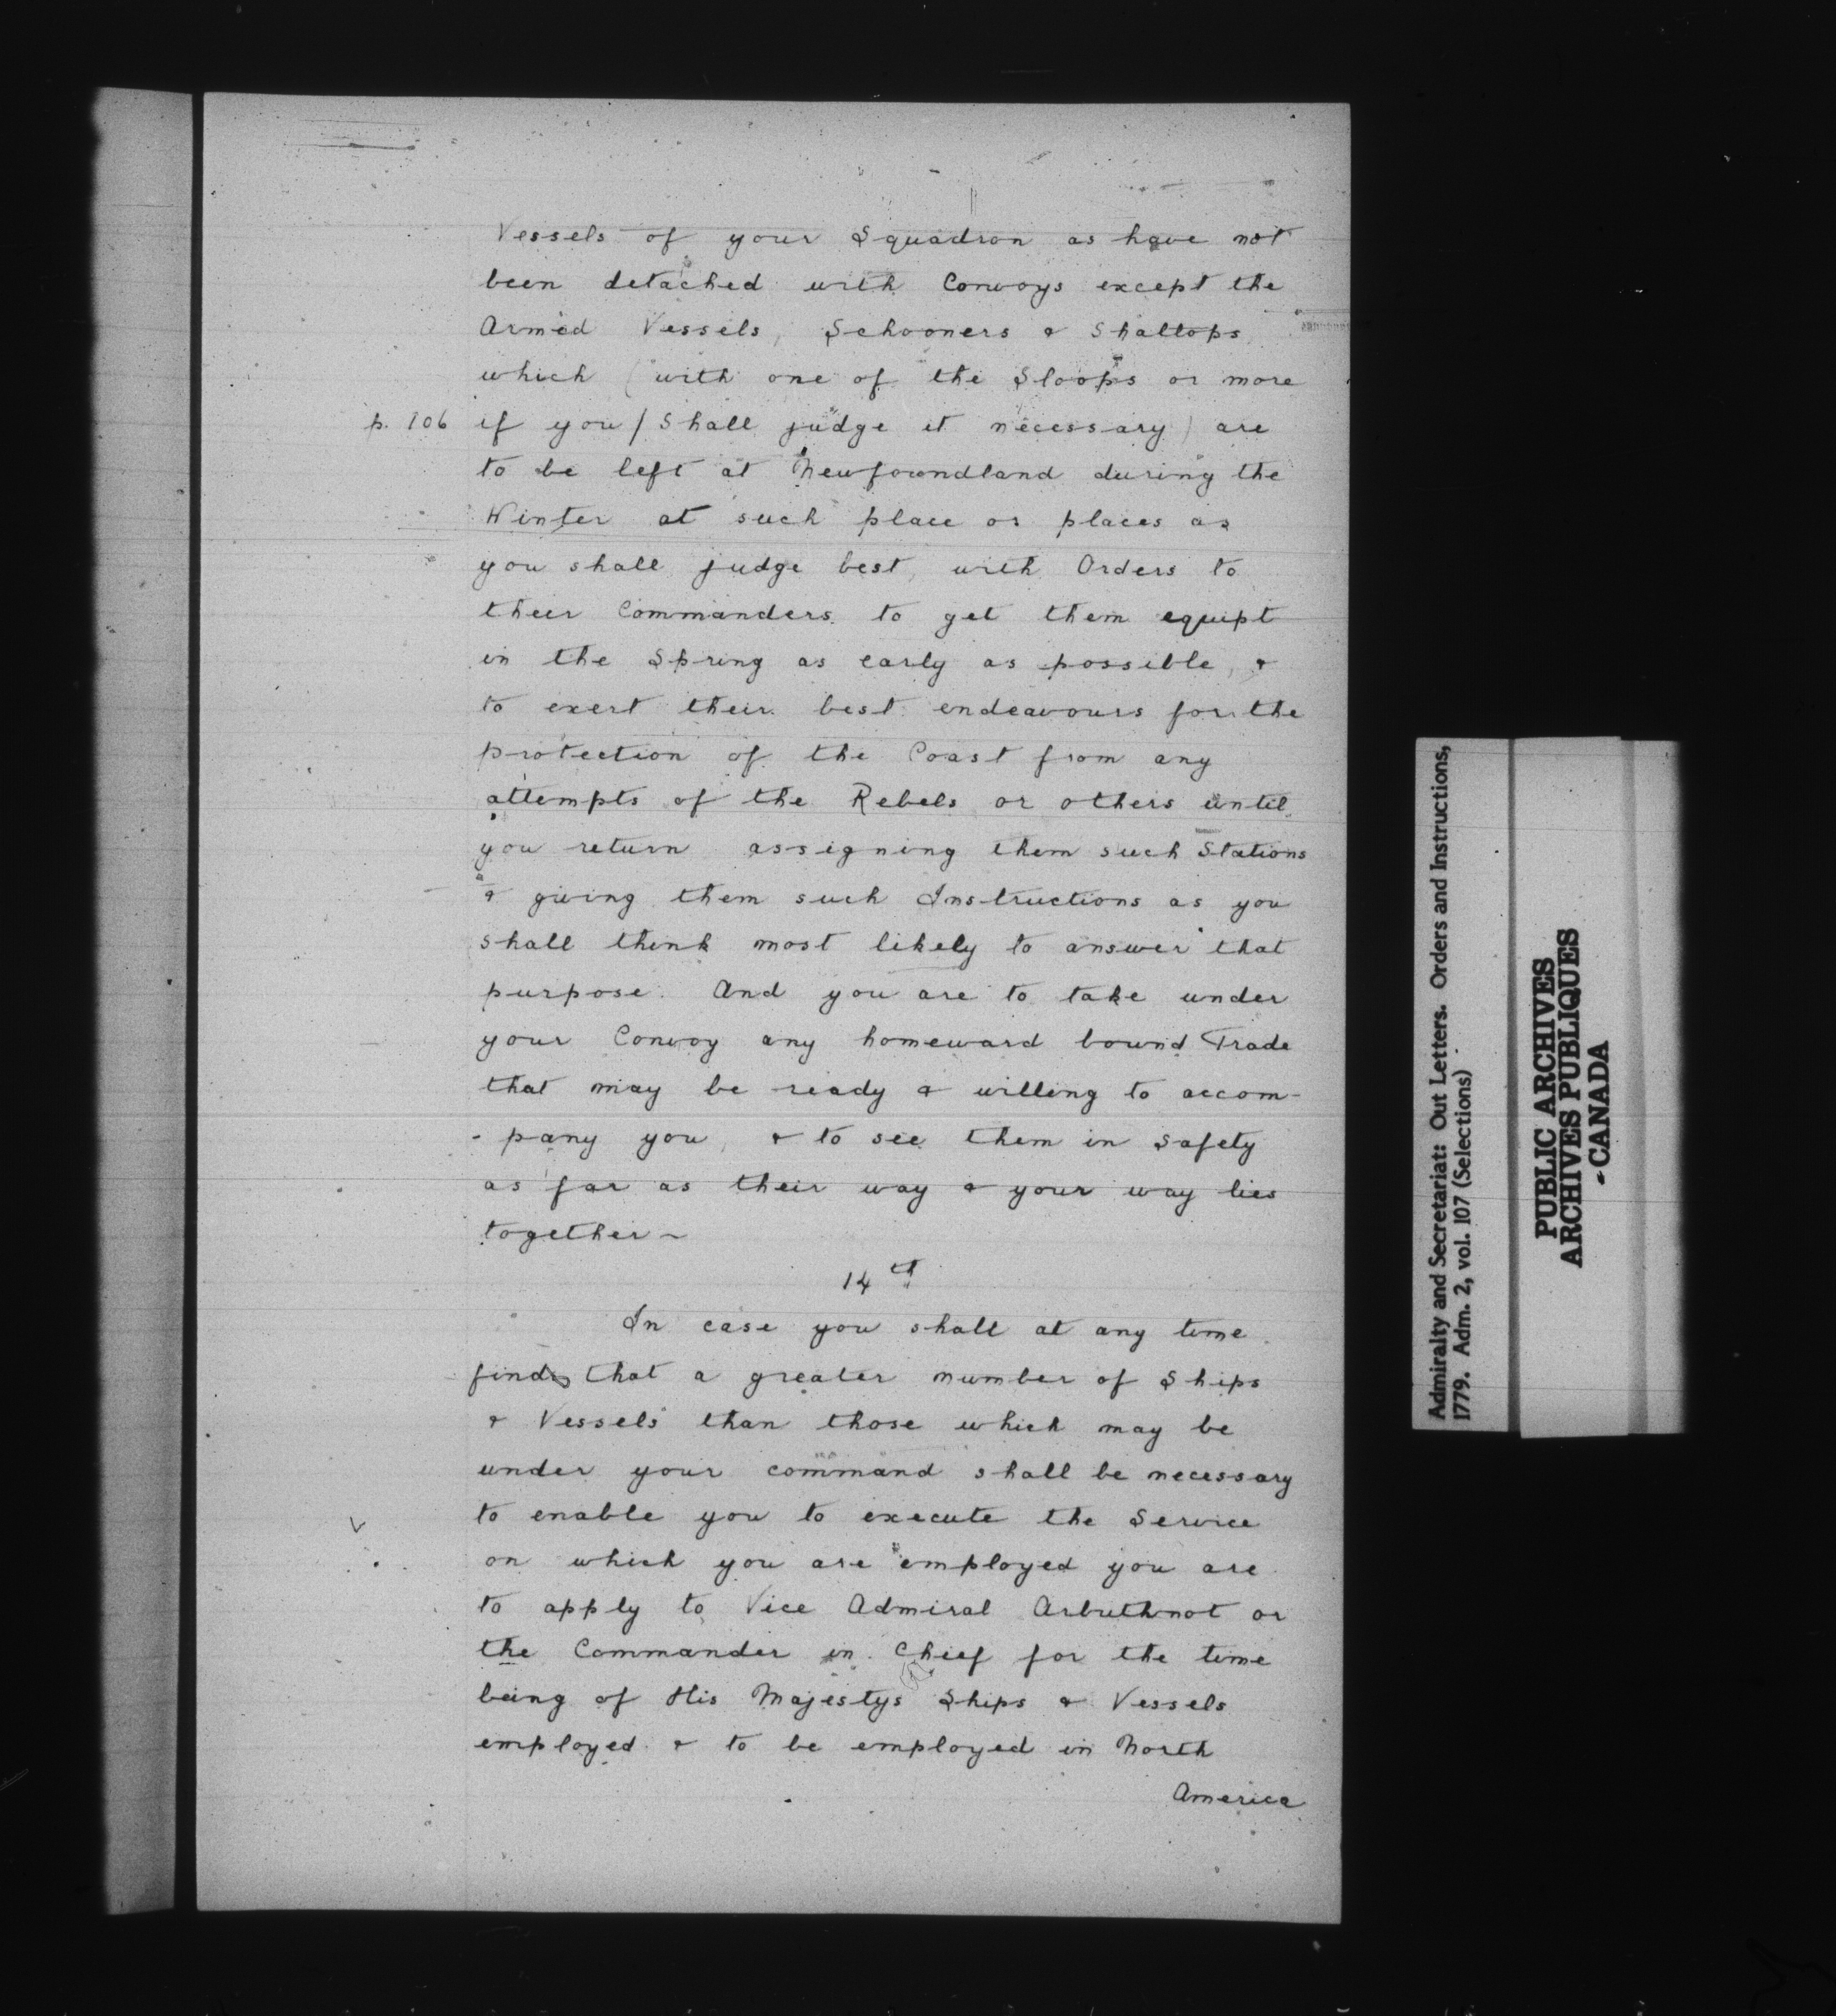 Vessels of your Squadron as have not
been detached with Convoys except the
Armed Vessels, Schooners & Shallops
which (with one of the Sloops or more
p. 106 if you / shall judge it necessary) are
to be left at Newfoundland during the
Winter at such place or places as
you shall judge best, with Orders to
their Commanders to get them equipt
in the Spring as early as possible, &
to exert their best endeavours for the
protection of the Coast from any
attempts of the Rebels or others until
you return assigning them such Stations
& giving them such Instructions as you
shall think most likely to answer that
purpose. And you are to take under
your Convoy any homeward bound Trade
that may be ready & willing to accom-
-pany you, & to see them in safety
as far as their way & your way lies
together ~
14th
In case you shall at any time
find that a greater number of Ships
& Vessels than those which may be
under your command shall be necessary
to enable you to execute the Service
on which you are employed you are
to apply to Vice Admiral Arbuthnot or
the Commander in Chief for the time
being of His Majestys Ships & Vessels
employed & to be employed in North
America
Admiralty and Secretariat: Out Letters. Orders and Instructions,
1779. Adm. 2, vol. 107 (Selections)
PUBLIC ARCHIVES
ARCHIVES PUBLIQUES
- CANADA